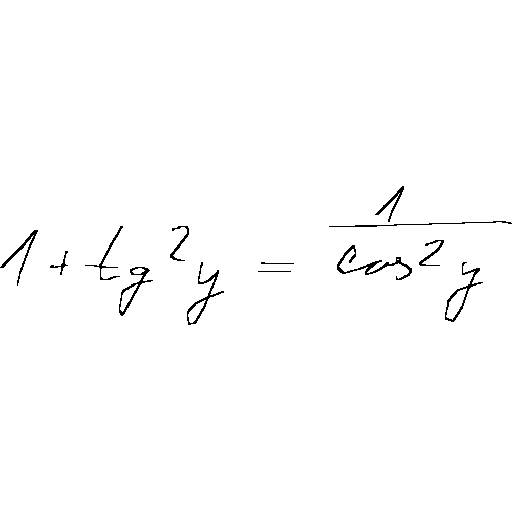 1 + tg²y = \frac{1}{cos²y}